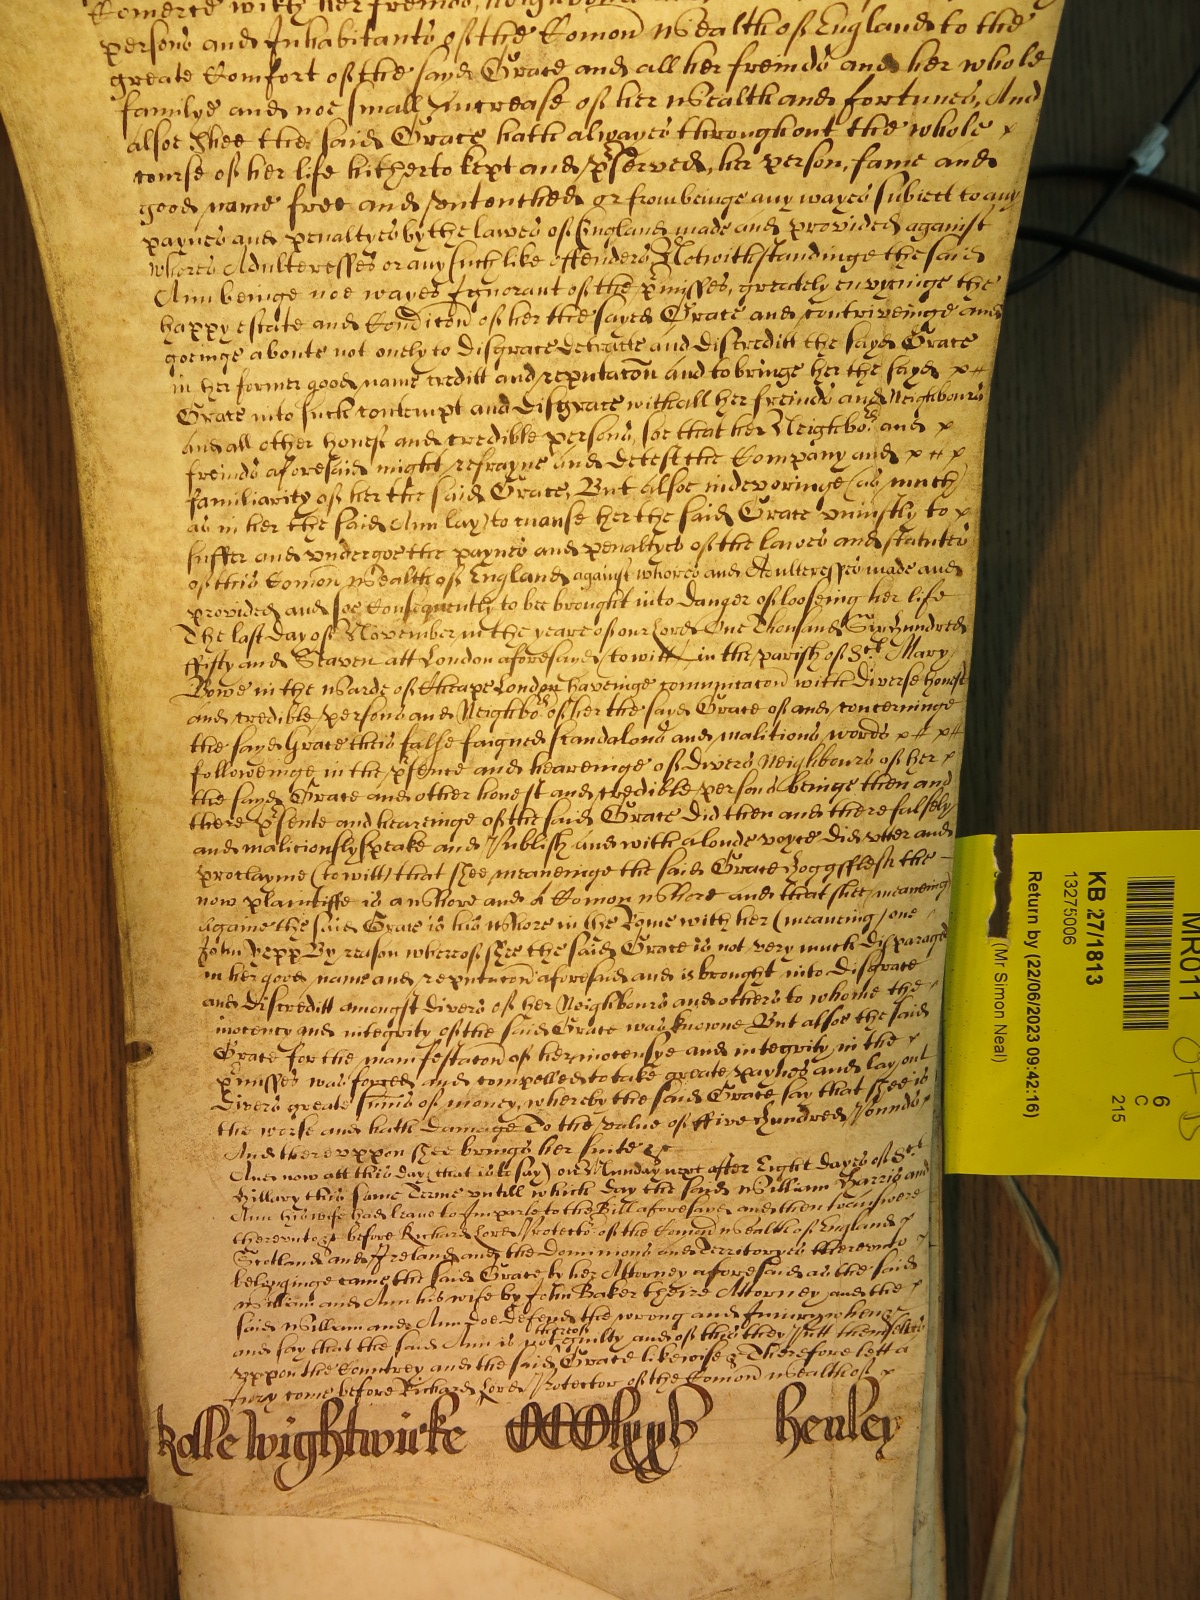 Comerce with her freinds, neighbours
persons and Inhabitants of the Comon Wealth of England to the
greate Comfort of the sayd Grace and all her freinds and her whole
familye and noe small Increase of her wealth and fortunes, And
alsoe Shee the said Grace hath alwayes throughout the whole x
course of her life hitherto kept and p̱served, her person, fame and
good name free and untouched or from beinge any wayes subiect to any
paynes and penaltyes by the lawes of England made and provided against
whores Adulteresses or any such like offenders Notwithstandinge the said
Ann beinge noe wayes Ignorant of the p̱misses, greately envyinge the
happy estate and Condic̄on of her the sayd Grace and contriveinge and
goeinge aboute not onely to disgrace detracte and discreditt the sayd Grace
in her former good name creditt and reputac̄on and to bringe her the sayd x #
Grace into such contempt and disgrace with all her freinds and Neighbours
and all other honest and credible persons, soe that her Neighbors and x
freinds aforesaid might refrayne and detest the Company and x # x
familiarity of her the said Grace, But alsoe indevoringe (as much
as in her the said Ann lay) to cause her the said Grace uniustly to x
suffer and undergoe the paynes and penaltyes of the lawes and statutes
of this Comon Wealth of England against whores and Adulteresses made and
provided and soe Consequently to bee brought into danger of looseing her life
The last day of November in the yeare of our Lord One Thousand Six Hundred
ffifty and Seaven att London aforesayd (to witt) in the parish of St. Mary
Bowe in the Warde of Cheape London haveinge comunicac̄on with diverse honest
and credible persons and Neighbors of her the sayd Grace of and concerninge
the sayd Grace theis false faigned scandalous and malitious words x # x #
followeinge in the p̱sence and heareinge of divers Neighbours of her x
the sayd Grace and other honest and credible persons beinge then and
there p̱sente and heareinge of the said Grace did then and there falsely
and maliciously speake and Publish and with a loude voyce did utter and
proclayme (to witt) that Shee, meaneinge the said Grace Hoggsflesh the
now plaintiffe is a Whore and a Comon Whore and that shee (meaneing
againe the said Grace is his Whore in the Rome with her (meaneing) one
John Pepp By reason whereof shee the said Grace is not very much disparaged
in her good name and reputac̄on aforesaid and is brought into disgrace
and discreditt amongst divers of her Neighbours and others to whome the
inocency and integrity of the said Grace was knowne But alsoe the said
Grace for the manifestac̄on of her inocensye and integrity in the x
p̱misses was forced and compelled to take greate paynes and lay out
divers greate sums of money, whereby the said Grace say that shee is
the worse and hath damage To the value of ffive Hundred Pounds
And thereuppon shee brings her suite &c
And now att this day (that is to say) on Munday next after Eight dayes of St.
Hillary this same Terme untill which day the said William Harris and
Ann his wife had leave to Imparle to the Bill aforesayd and then to answere
thereunto &c before Richard Lord Protector of the Comon wealth of England
Scotland and Ireland and the Dominions and Territoryes thereunto
belonginge came the said Grace by her Attorney aforesaid as the said
William and Ann his wife by John Baker theire Attorney and the x
said William and Ann doe defend the wrong and Iniury when &c
and say that the said Ann is not thereof guilty and of this they Putt themselves
uppon the Countrey and the said Grace likewise &c Therefore lett a
Jury come before Richard Lord Protector of the Comon wealth of x
Rolle Wightwicke CCClxxv Henley
MR011
KB 27/1813
13275006
Return by (22/06/2023 09:42:16)
(Mr Simon Neal)
6
C
215